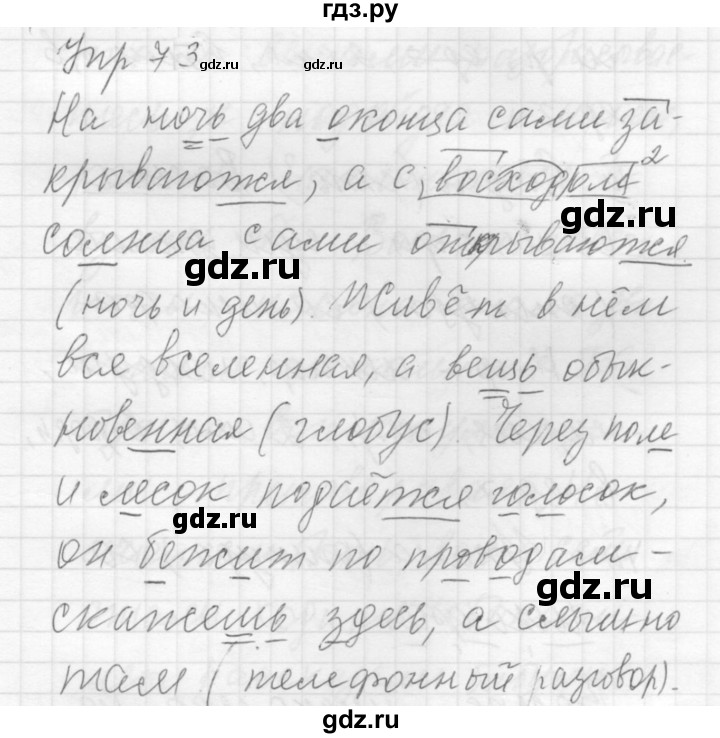 гдз.ру
Упр 73
gdz.ru gdz.ru
На ночь два оконца сами за-
крываются, а с восходом²
gdz.ru
солнца сами открываются
gdz.ru
(ночь и день). Живёт в нём
вся вселенная, а вещь обык-
новенная (глобус). Через поле
и лесок подаётся голосок,
gdz.ru
он бежит по проводам -
gdz.ru
скажешь здесь, а слышно
там (телефонный разговор).
gdz.ru